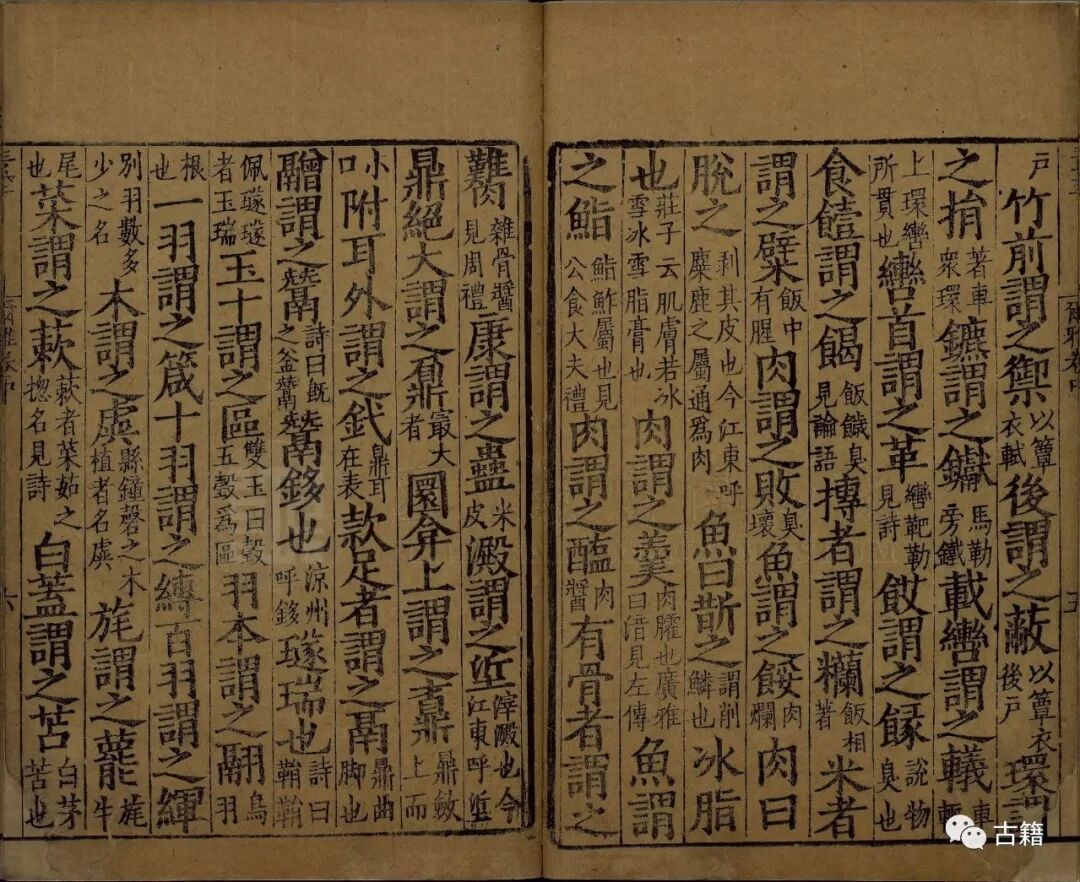 户竹前謂之禦以簟衣軾後謂之蔽以簟衣後户環謂
之捐著車衆環鑣謂之钀馬勒旁鐵載轡謂之轙車軶
上環轡所貫也轡首謂之革轡靶勒見詩餀謂之餯說物臭也
食饐謂之餲飯饖臭見論語摶者謂之糷飯相著米者
謂之檗飯中有腥肉謂之敗臭壞魚謂之餒肉爛肉曰
脫之剥其皮也今江東呼麋鹿之屬通爲肉魚曰斮之謂削鱗也冰脂
也莊子云肌膚若冰雪冰雪脂膏也肉謂之羹肉臛也廣雅曰湆見左傳魚謂
之鮨鮨鮓屬也見公食大夫禮肉謂之醢肉醬有骨者謂之
臡雜骨醬見周禮康謂之蠱米皮澱謂之垽滓澱也今江東呼垽
鼎絕大謂之鼐最大者圜弇上謂之鼒鼎斂上而
小口附耳外謂之釴鼎耳在表款足者謂之鬲鼎曲脚也
䰝謂之鬵詩曰溉之釜鬵鬵鉹也涼州呼鉹璲瑞也詩曰鞙鞙
佩璲璲者玉瑞玉十謂之區雙玉曰瑴五瑴爲區羽本謂之翮鳥羽
根也一羽謂之箴十羽謂之縛百羽謂之緷
別羽數多少之名木謂之虡縣鐘磬之木植者名虡旄謂之藣旄牛
尾也菜謂之蔌蔌者菜茹之揔名見詩白蓋謂之苫白茅苫也
古籍